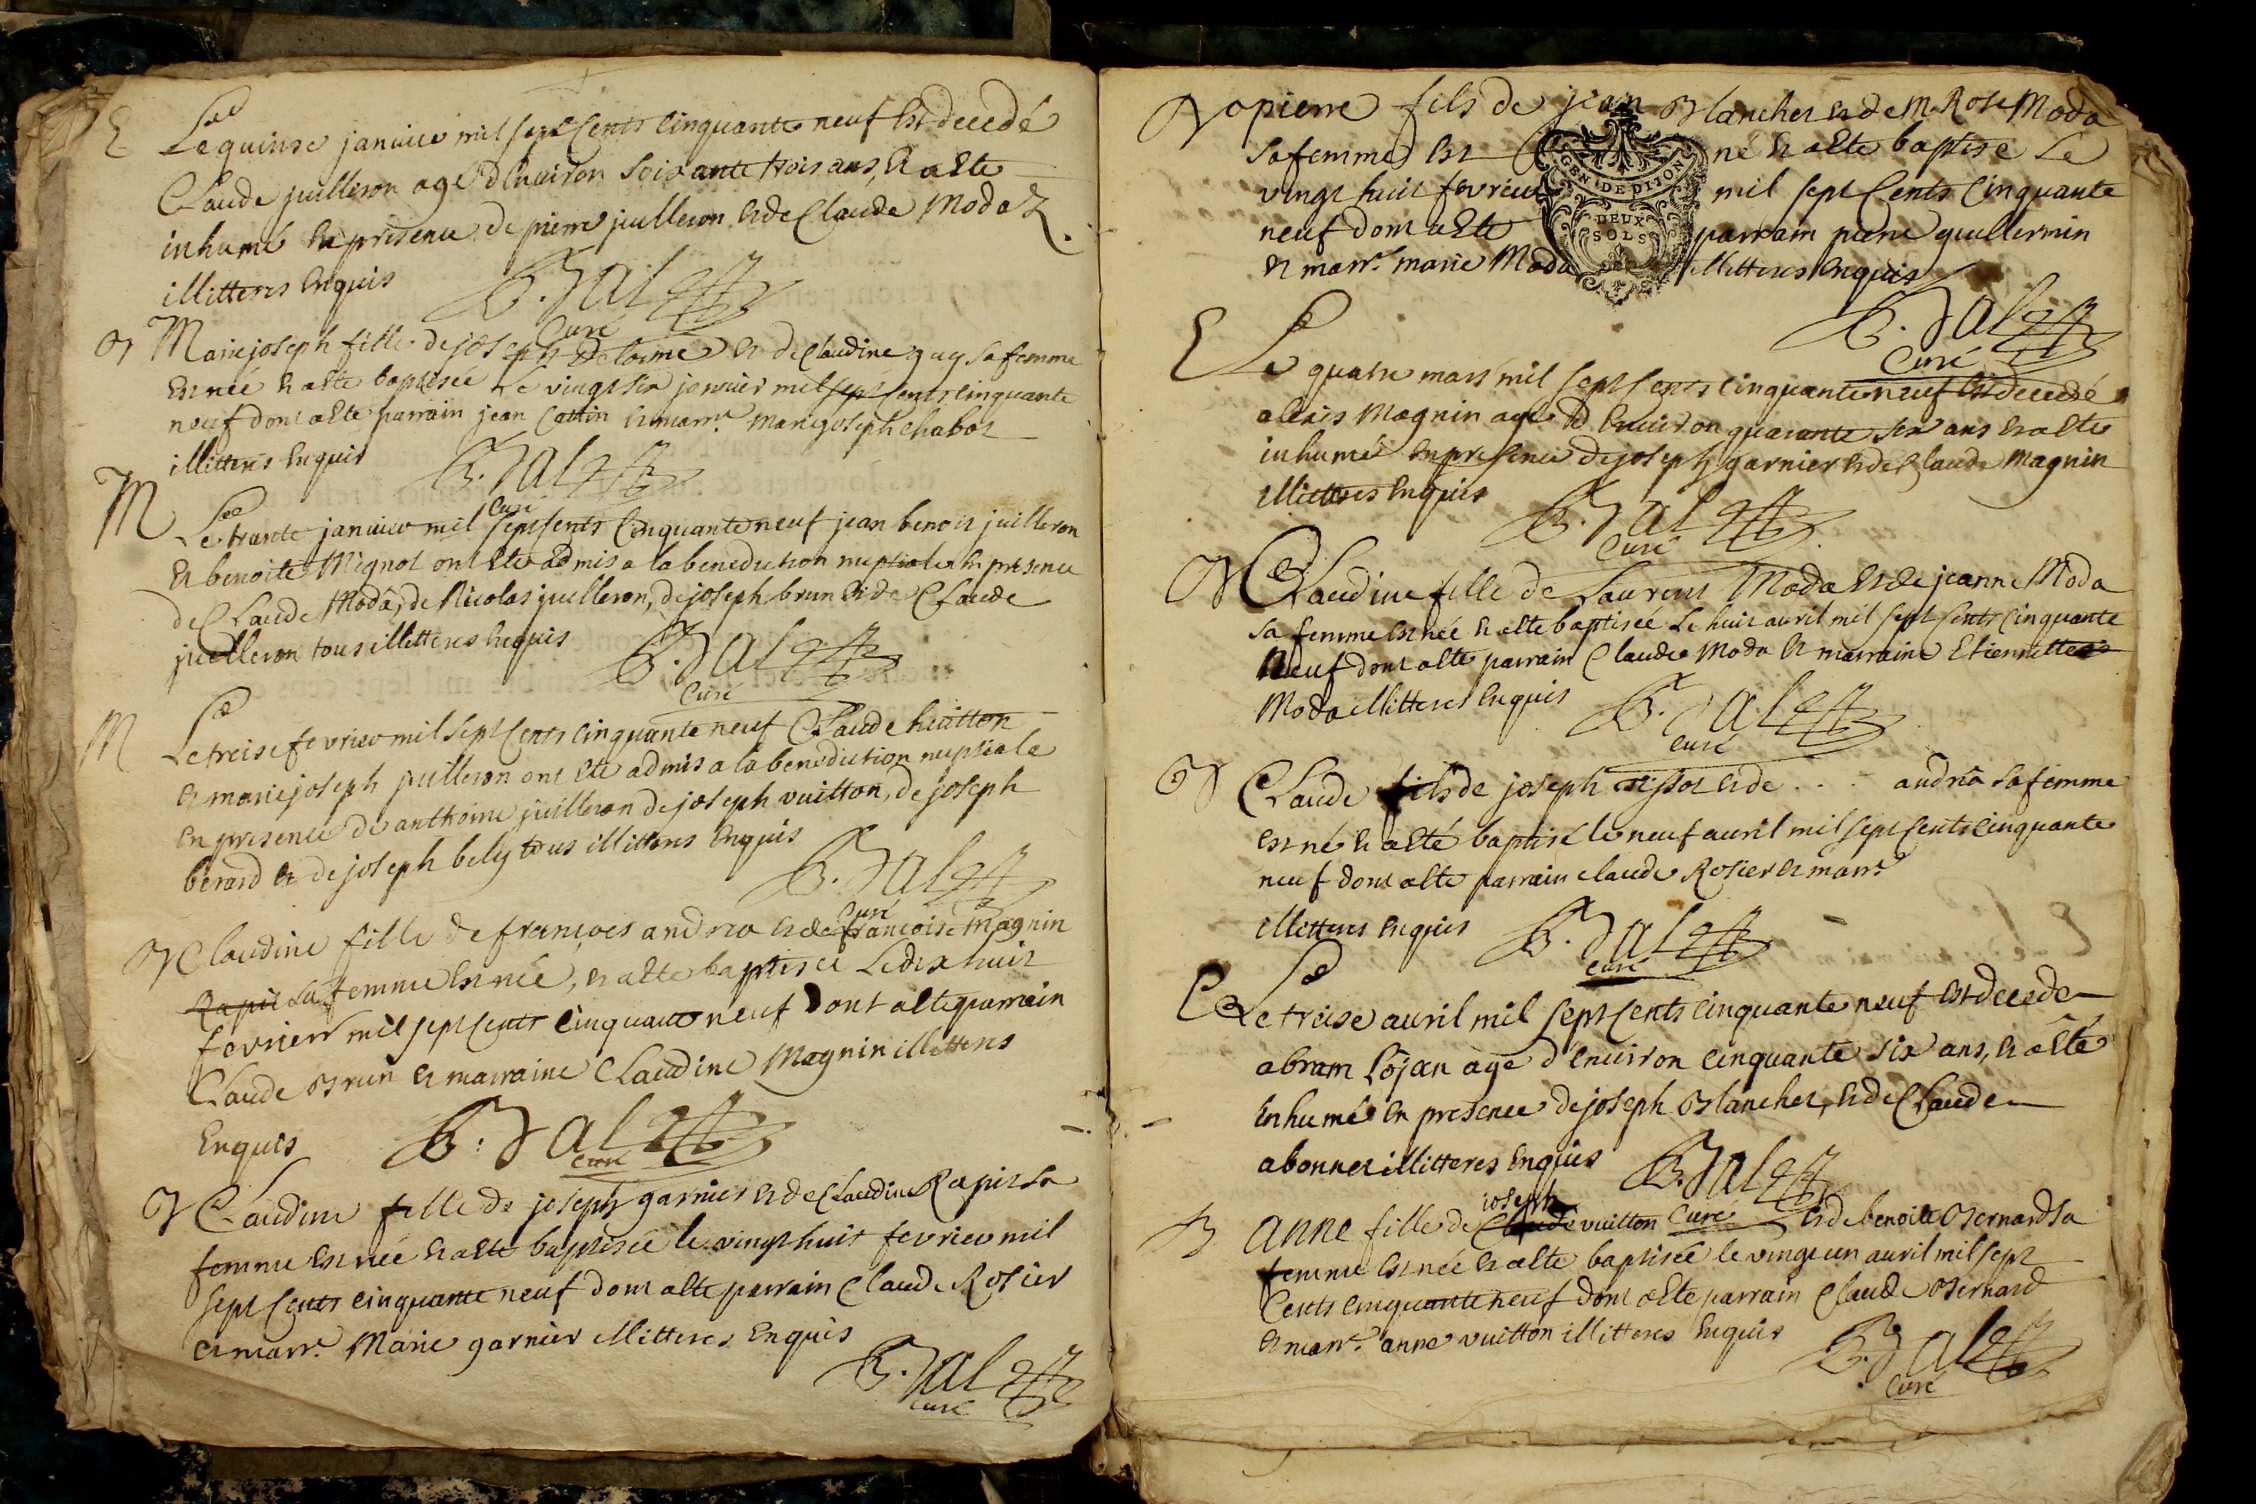 E Le quinse janvier mil sept Cents Cinquante neuf Est decedé
Claude juilleron agé d'Environ Soixante trois ans, Et a Ete
inhumé En presence de pierre juilleron Et de Claude Moda
illitteres Enquis B. Jalett
Curé
B Marie joseph fille de joseph Delorme Et de Claudine guy Sa femme
Est née Et a Ete baptisée Le vingt six janvier mil sept Cents Cinquante
neuf dont a Ete parrain jean Cottin Et marr.e marie joseph chabot
illitteres Enquis B. Jalett
Curé
M Le trente janvier mil sept Cents Cinquante neuf jean benoit juilleron
Et benoite Mignot ont Ete admis a la benediction nuptiale En presence
de Claude Moda, de Nicolas juilleron, de joseph brun Et de Claude
juilleron tous illitteres Enquis B. Jalett
Curé
M Le treise fevrier mil sept Cents Cinquante neuf Claude huitton
Et marie joseph juilleron ont Ete admis a la benediction nuptiale
En presence de anthoine juilleron de joseph vuitton, de joseph
berard Et de joseph bely tous illitteres Enquis
B. Jalett
Curé
B Claudine fille de francois andrea Et de francoise Magnin
Rapit Sa femme Est née, Et a Ete baptisée Le dix huit
fevrier mil sept Cents Cinquante neuf Dont a Ete parrain
Claude Brun Et marraine Claudine Magnin illitteres
Enquis B. Jalett
Curé
B Claudine fille de joseph garnier Et de Claudine Rapit Sa
femme Est née Et a Ete baptisée le vingt huit fevrier mil
sept Cents Cinquante neuf dont a Ete parrain Claude Rosier
Et marr.e Marie garnier illitteres Enquis
B. Jalett
Curé
B pierre fils de jean Blanchet Et de M. Rose Moda
Sa femme Est né Et a Ete baptisé Le
vingt huit fevrier mil sept Cents Cinquante
neuf dont a Ete parrain pierre guillermin
Et marr.e marie Moda illitteres Enquis
GEN. DE DIJON
DEUX
SOLS
B. Jalett
Curé
E Le quatre mars mil sept Cents Cinquante neuf Est decedé
alexis Magnin agé d'Environ quarante six ans Et a Ete
inhumé En presence de joseph garnier Et de Claude Magnin
illitteres Enquis B. Jalett
Curé
B Claudine fille de Laurent Moda Et de jeanne Moda
Sa femme Est née Et a Ete baptisée Le huit avril mil sept Cents Cinquante
Neuf dont a Ete parrain Claude Moda Et marraine Etiennette
Moda illitteres Enquis B. Jalett
Curé
B Claude fils de joseph Et de . . . andrea Sa femme
Est né Et a Eté baptisé le neuf avril mil sept Cents Cinquante
neuf dont a Ete parrain claude Rosier Et marr.e
illitteres Enquis B. Jalett
Curé
E Le treise avril mil sept Cents Cinquante neuf Est decedé
abram Lojan agé d'Environ Cinquante six ans, Et a Eté
Enhumé En presence de joseph Blanchet, Et de Claude
abonnet illitteres Enquis B. Jalett
Curé
joseph
B anne fille de Claude vuitton Et de benoite Bernard Sa
femme Est née Et a Ete baptisée le vingt un avril mil sept
Cents Cinquante neuf dont a Ete parrain Claude Bernard
Et marr.e anne vuitton illitteres Enquis B. Jalett
Curé